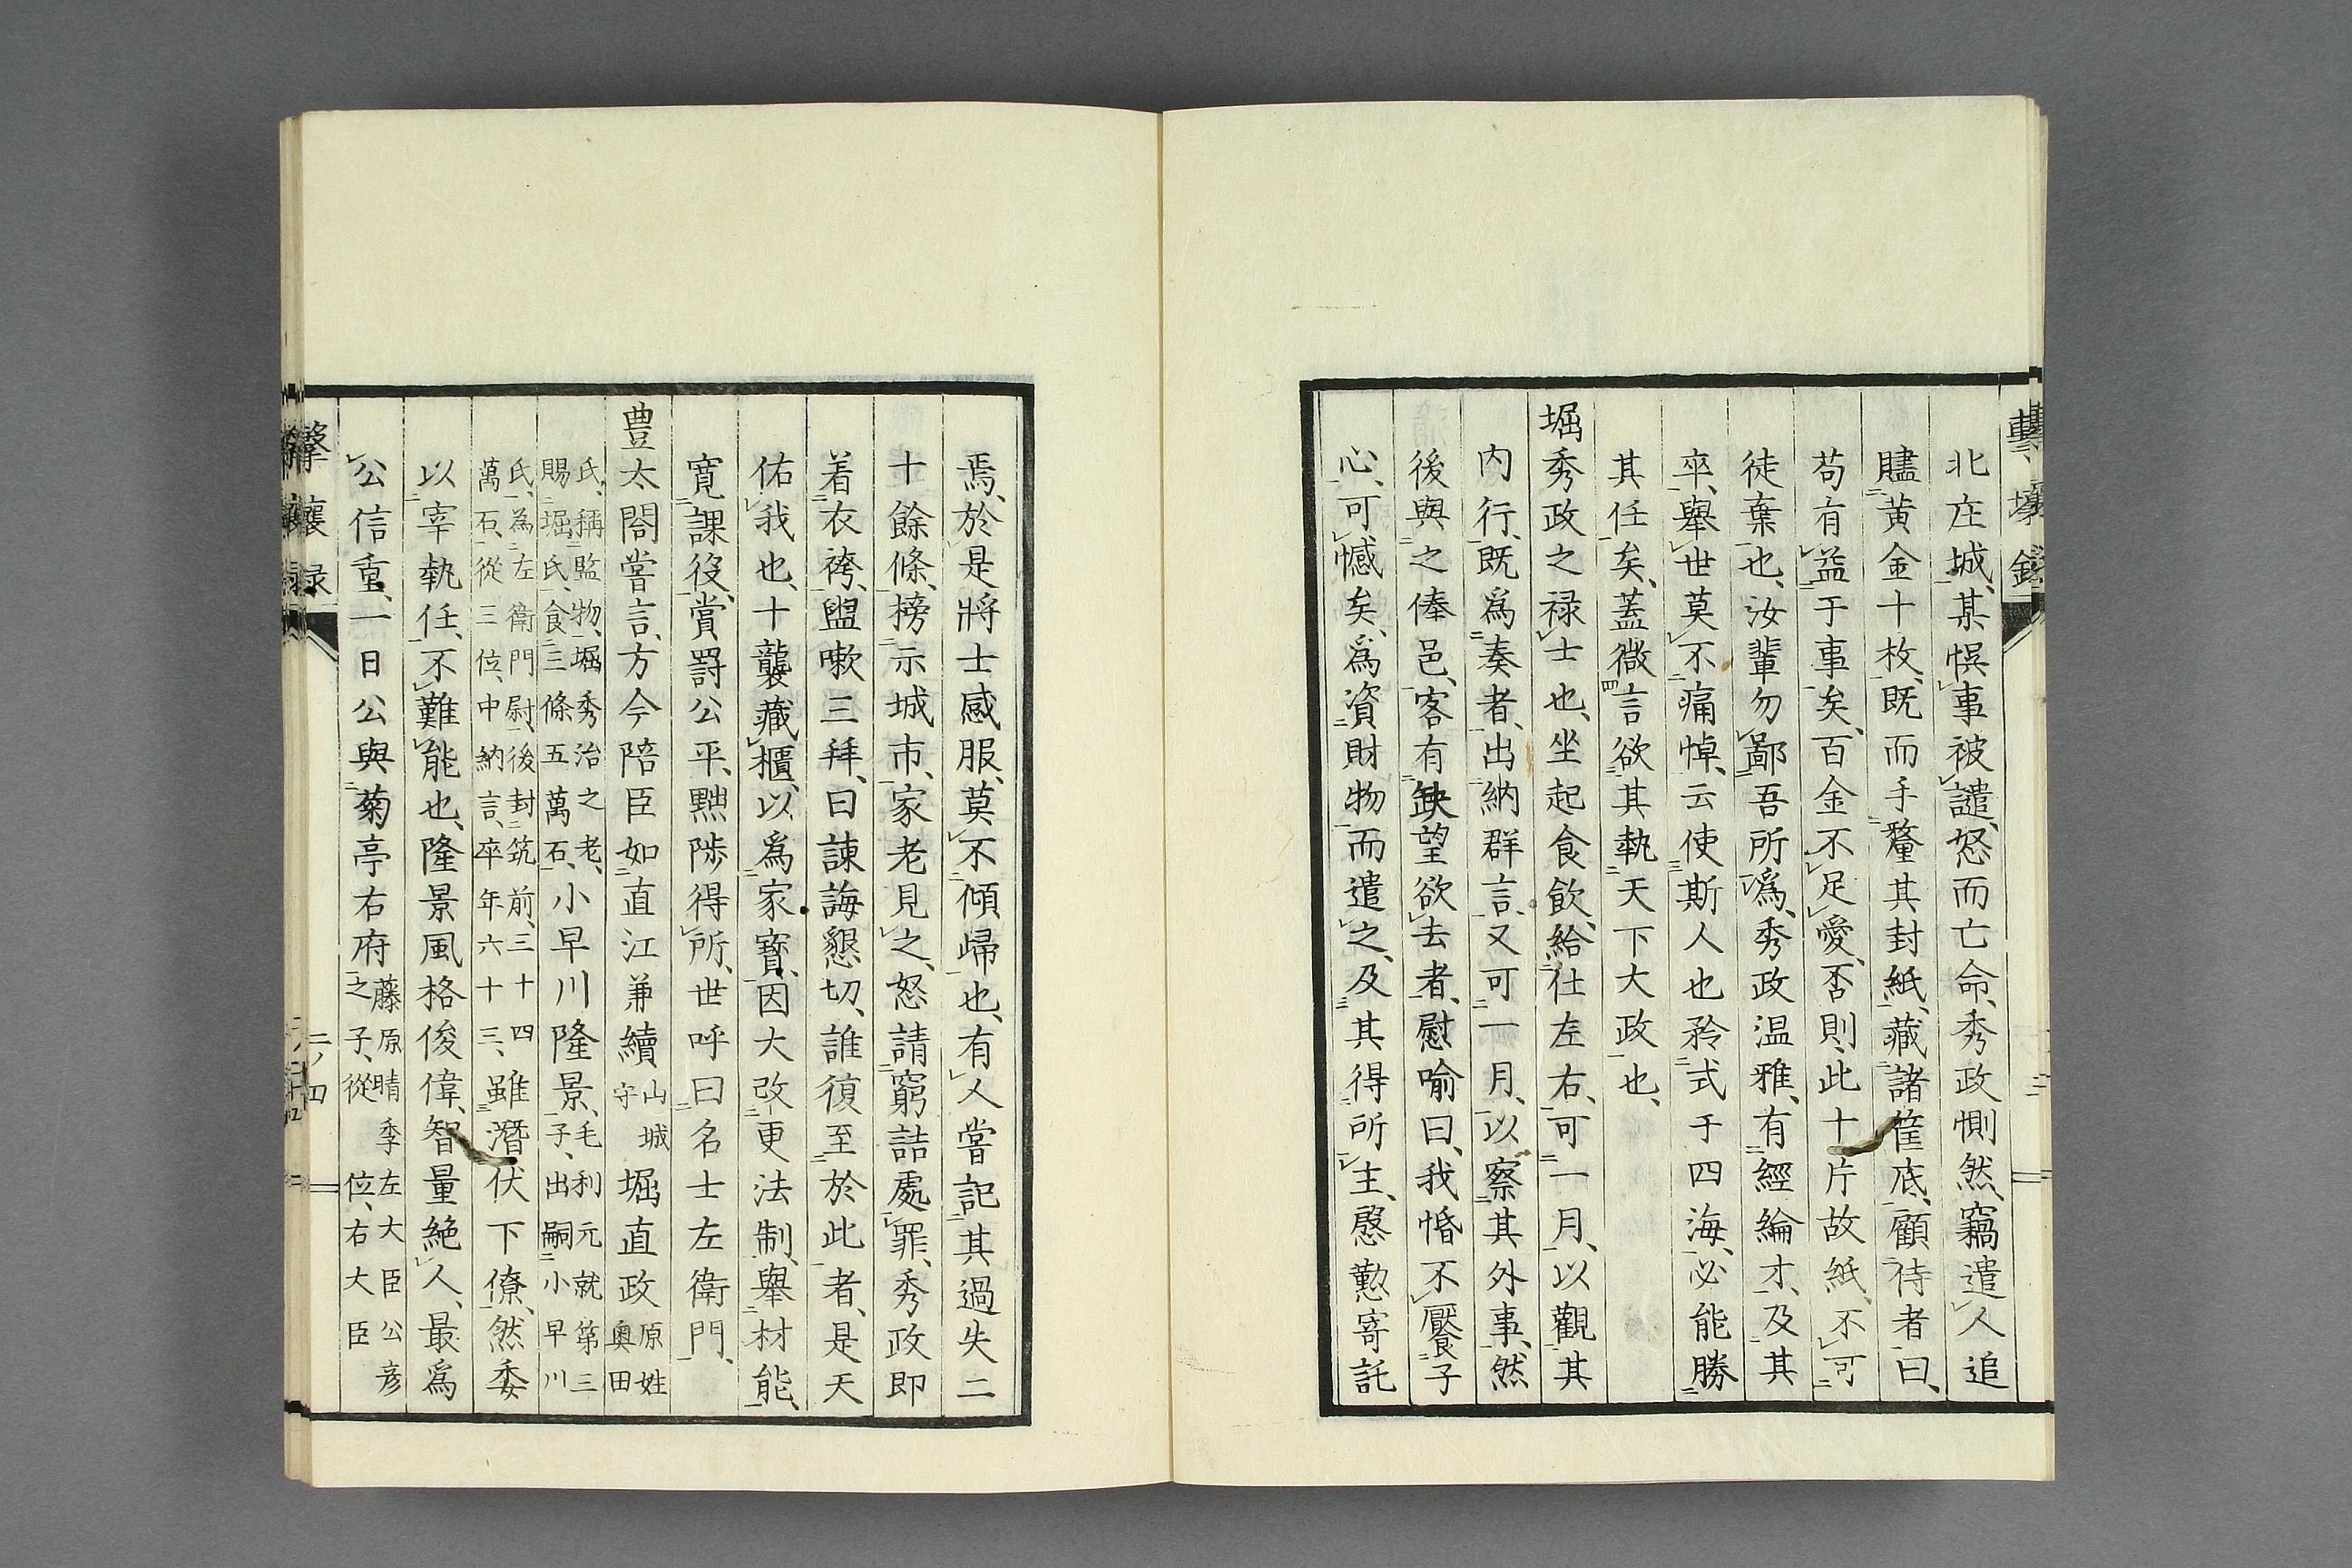 北庄城、某悞事被譴、怒而亡命、秀政惻然、竊遣人追
贐黃金十枚、既而手釐其封紙、藏諸筐底、顧待者曰、
苟有益于事矣、百金不足愛、否則、此十片故紙、不可
徒棄也、汝輩勿鄙吾所爲、秀政温雅、有經綸才、及其
卒、舉世莫不痛悼、云使斯人也矜式于四海、必能勝
其任矣、蓋微言欲其執天下大政也、
堀秀政之禄士也、坐起食飲、給仕左右、可一月、以觀其
内行、既爲奏者、出納群言、又可一月、以察其外事、然
後與之俸邑、客有缺望欲去者、慰喻曰、我惛不饜子
心、可憾矣、爲資財物而遣之、及其得所主、慇懃寄託
焉、於是將士感服、莫不傾歸也、有人嘗記其過失二
十餘條、榜示城市、家老見之、怒請窮詰處罪、秀政即
着衣袴、盥嗽三拜、曰諫誨懇切、誰復至於此者、是天
佑我也、十襲藏櫃、以爲家寶、因大改更法制、舉材能、
寛課役、賞罰公平、黜陟得所、世呼曰名士左衛門、
豊太閤嘗言、方今陪臣如直江兼續山城守堀直政原姓奥田
氏、稱監物、堀秀治之老、賜堀氏、食三條五萬石、小早川隆景、毛利元就第三子、出嗣小早川
氏、為左衛門尉、後封筑前、三十四萬石、從三位、中納言、卒年六十三、雖潛伏下僚、然委
以宰執任、不難能也、隆景風格俊偉、智量絶人、最爲
公信重、一日公與菊亭右府藤原晴季左大臣公彦之子、從位、右大臣
擊壤録
二ノ四